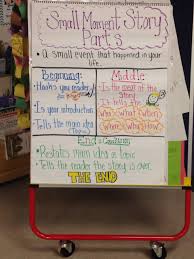 Small Moment Story
Parts
• A small event that happened in your
life.
Beginning:
• Hooks your reader
• Is your introduction
• Tells the main idea
(Topic)
Middle:
• Is the meat of the
Story
• It tells the
Who's What's When's
Where's Why's How's
End =
• Restates main idea or topic
• Tells the reader the story is over.
THE END